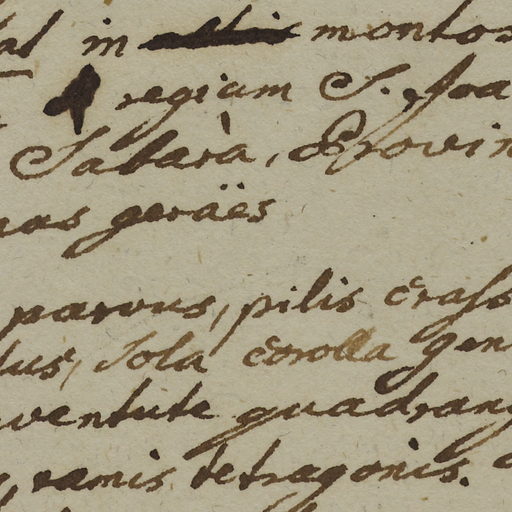 in altis montos
regium S. Joa
Sabarà, Provin
nas geräes
parvus, pilis crass
sola corolla gen
ventute quadrang
ramis tetragonis.